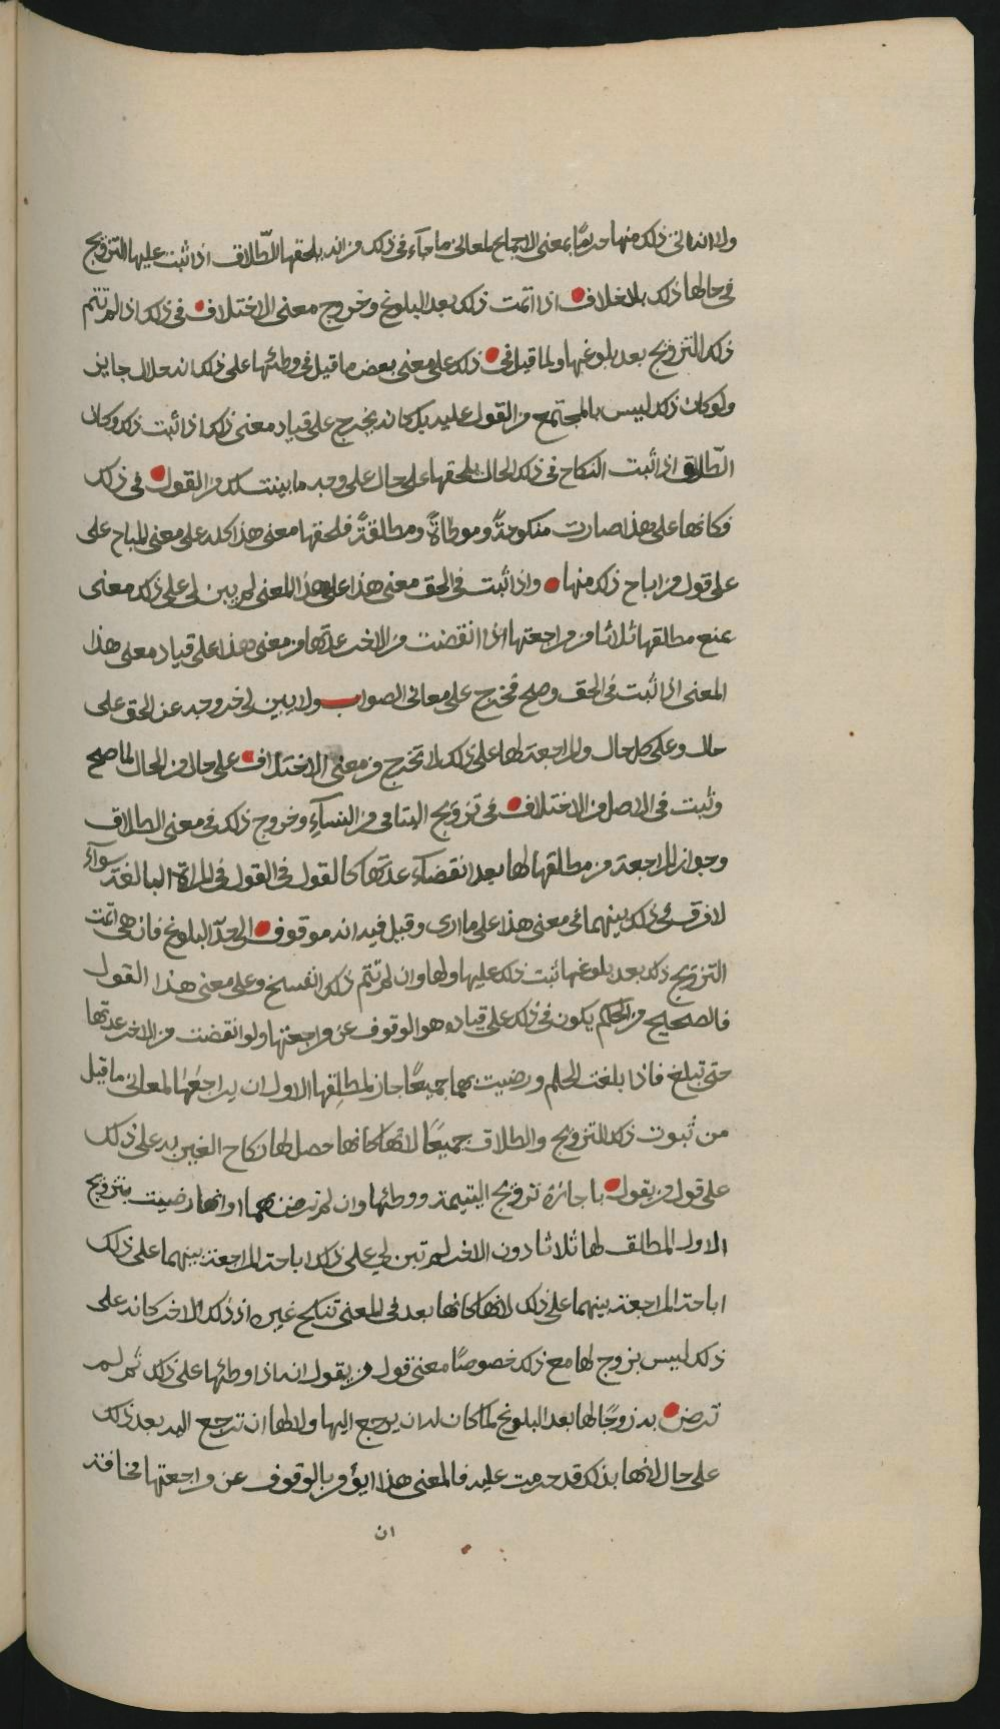 ولا انه اتى ذلك منها حراما بمعنى الاجماع لمعانى ما جآء فى ذلك من انه يلحقها الطّلاق اذا ثبت عليها التزويج
فى حالها ذلك بلا خلاف اذا اتمت ذلك بعد البلوغ وخروج معنى الاختلاف فى ذلك اذا لم تتم
ذلك التزويج بعد بلوغها ولما قيل فى ذلك على معنى بعض ما قيل فى وطئها على ذلك انه حلال جايز
ولو كان ذلك ليس بالمجتمع من القول عليه بل كانه يخرج على قياد معنى ذلك اذا ثبت ذلك وكان
الطّلاق اذا ثبت النكاح فى ذلك الحال يلحقها على حال على وجه ما بينت لك من القول فى ذلك
فكانها على هذا صارت منكوحةً وموطاةً ومطلقةً فلحقها معنى هذا كله على معنى المباح على
على قول من اباح ذلك منها واذا ثبت فى الحق معنى هذا على هذا المعنى لم يبن لى على ذلك معنى
منع مطلقها ثلاثا من مراجعتها اذا انقضت من الاخر عدتها من معنى هذا على قياد معنى هذا
المعنى اذا ثبت فى الحق وصح فخرج على معانى الصواب ولا يبين لى خروجه عن الحق على
حال وعلى كل حال والمراجعة لها على ذلك لا تخرج من معنى الاختلاف على حال من الحال لما صح
وثبت فى الاصل من الاختلاف فى تزويج اليتامى من النسآءِ وخروج ذلك فى معنى الطلاق
وجواز المراجعة من مطلقها لها بعد انقضآء عدتها كالقول فى القول فى المراة البالغة سوآء
لا فرق فى ذلك بينهما فى معنى هذا على ما ارى وقيل فيه انه موقوف الى حدّ البلوغ فان هى اتمت
التزويج ذلك بعد بلوغها ثبت ذلك عليها ولها وان لم تتم ذلك انفسخ وعلى معنى هذا القول
فالصحيح من الحكم يكون فى ذلك على قياده هو الوقوف عن مراجعتها ولو انقضت من الاخر عدتها
حتى تبلغ فاذا بلغت الحلم ورضيت بهما جميعًا جاز لمطلِقها الاول ان يراجعها لمعانى ما قيل
من ثبوت ذلك التزويج والطلاق جميعًا لانها كانها حصل لها نكاح الغير به على ذلك
على قول من يقول باجازة تزويج اليتيمة ووطئها وان لم ترض بهما او انها رضيت بتزويج
الاول المطلق لها ثلاثا دون الاخر لم تبن لي على ذلك اباحة المراجعة بينهما على ذلك
اباحة المراجعة بينهما على ذلك لانها كانها بعد فى المعنى تنكح غيره اذ ذلك الاخر كانه على
ذلك ليس بزوج لها مع ذلك خصوصًا معنى قول من يقول انه اذا وطئها على ذلك ثم لم
ترض به زوجًا لها بعد البلوغ لما كان له ان يرجع اليها ولا لها ان ترجع اليه بعد ذلك
على حال لانها بذلك قد حرمت عليه فالمعنى هذا يؤمر بالوقوف عن مراجعتها مخافة
ان